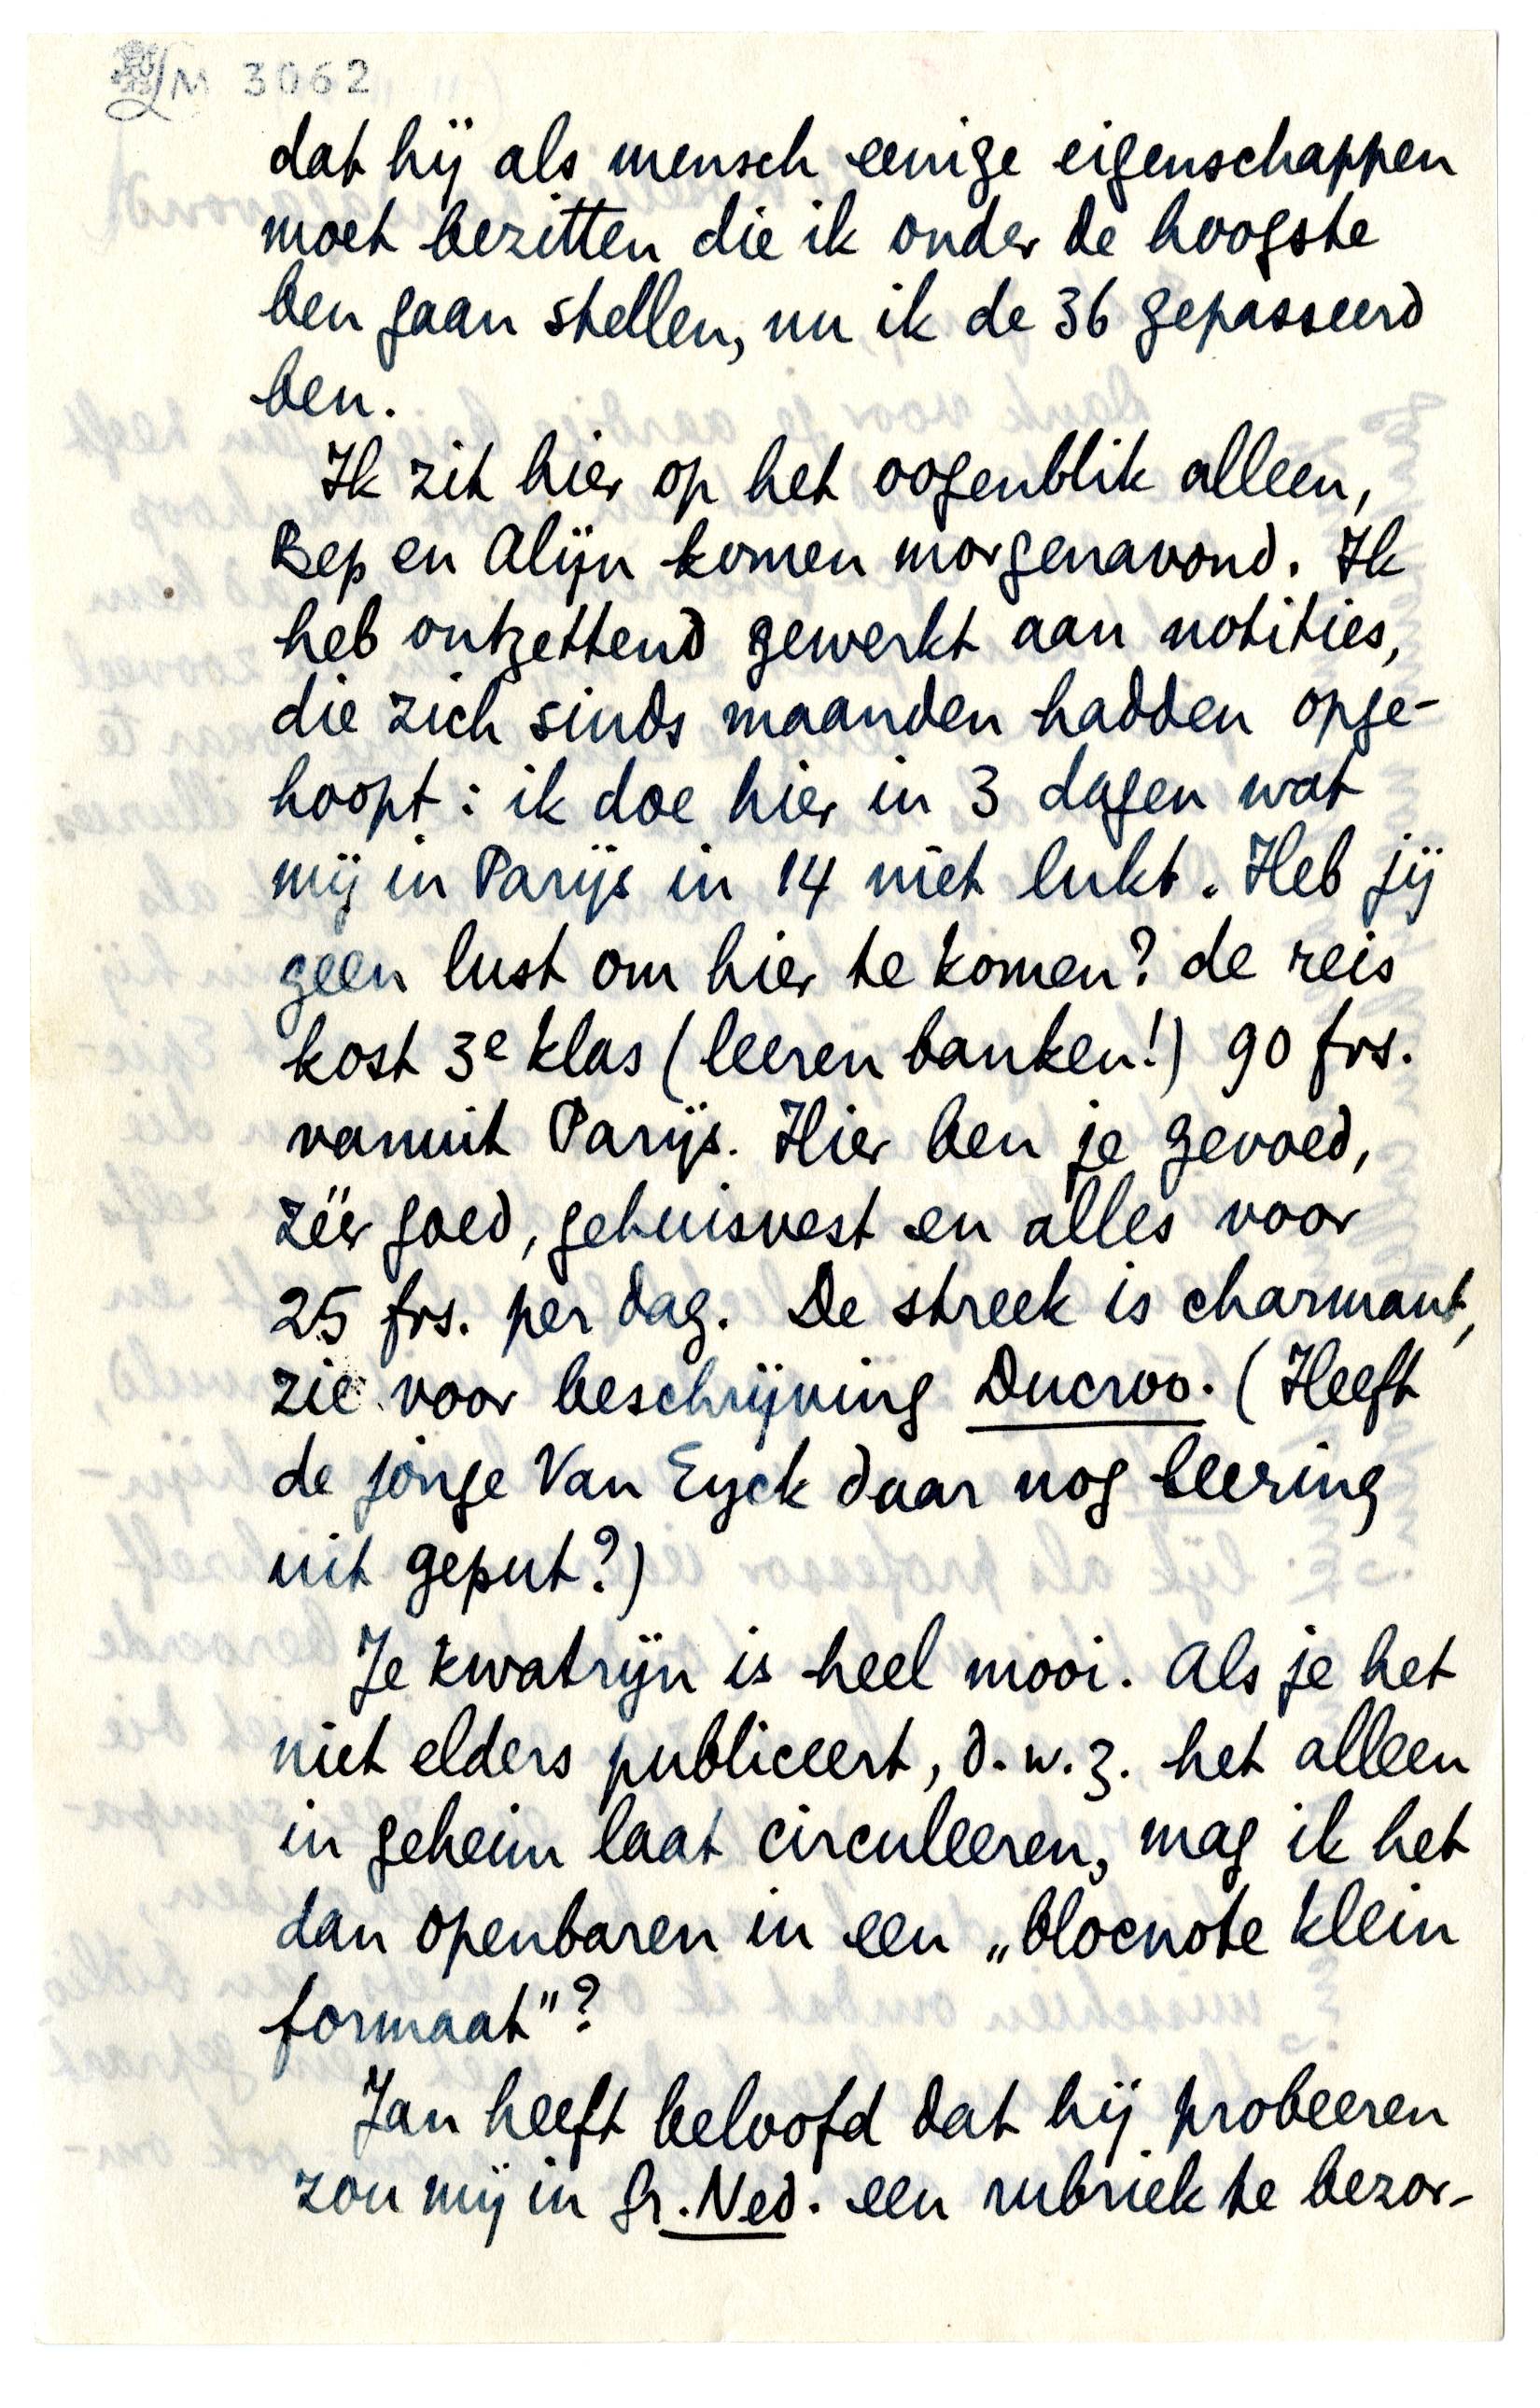 LM 3062
dat hij als mensch eenige eigenschappen
moet bezitten die ik onder de hoogste
ben gaan stellen, nu ik de 36 gepasseerd
ben.
Ik zit hier op het oogenblik alleen,
Bep en Alijn komen morgenavond. Ik
heb ontzettend gewerkt aan notities,
die zich sinds maanden hadden opge-
hoopt: ik doe hier in 3 dagen wat
mij in Parijs in 14 niet lukt. Heb jij
geen lust om hier te komen? de reis
kost 3e klas (leeren banken!) 90 frs.
vanuit Parijs. Hier ben je gevoed,
zéér goed, gehuisvest en alles voor
25 frs. per dag. De streek is charmant,
zie voor beschrijving Ducroo. (Heeft
de jonge Van Eyck daar nog leering
uit geput?)
Je kwatrijn is heel mooi. Als je het
niet elders publiceert, d.w.z. het alleen
in geheim laat circuleeren, mag ik het
dan openbaren in een „blocnote klein
formaat"?
Jan heeft beloofd dat hij probeeren
zou mij in Gr. Ned. een rubriek te bezor-